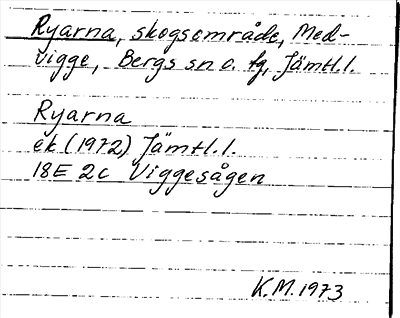 Ryarna, skogsområde, Med-
vigge, Bergs sn o. tg, Jämtl.l.
Ryarna
ek (1972) Jämtl.l.
18E 2c Viggesågen
K.M. 1973